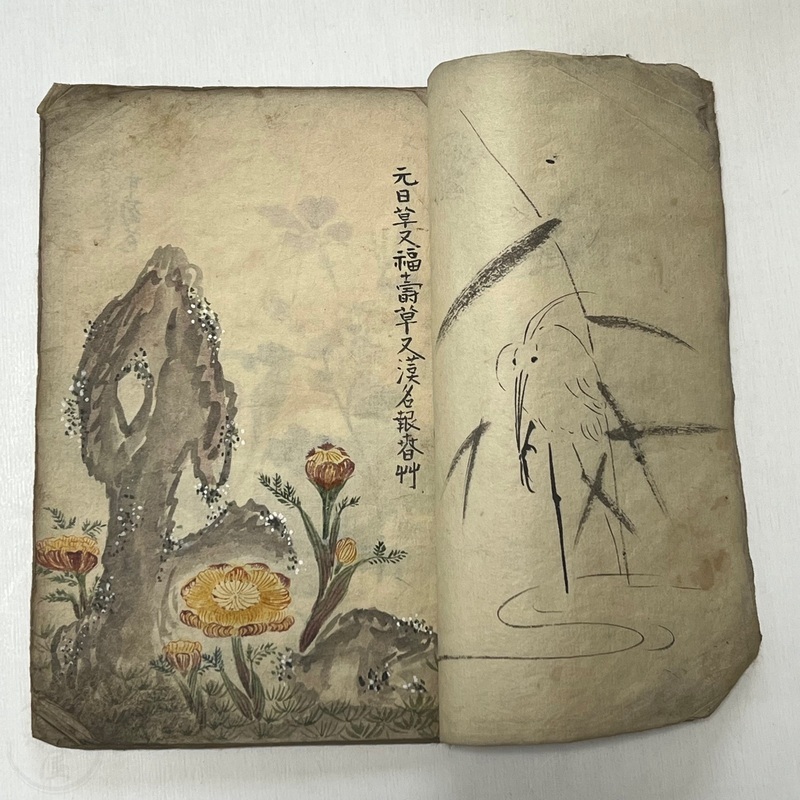 元日草又福壽草又漢名報春艸